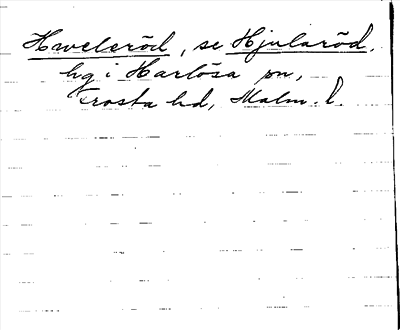 Hweleröd, se Hjularöd,
hg i Harlösa sn,
Frosta hd, Malm. l.